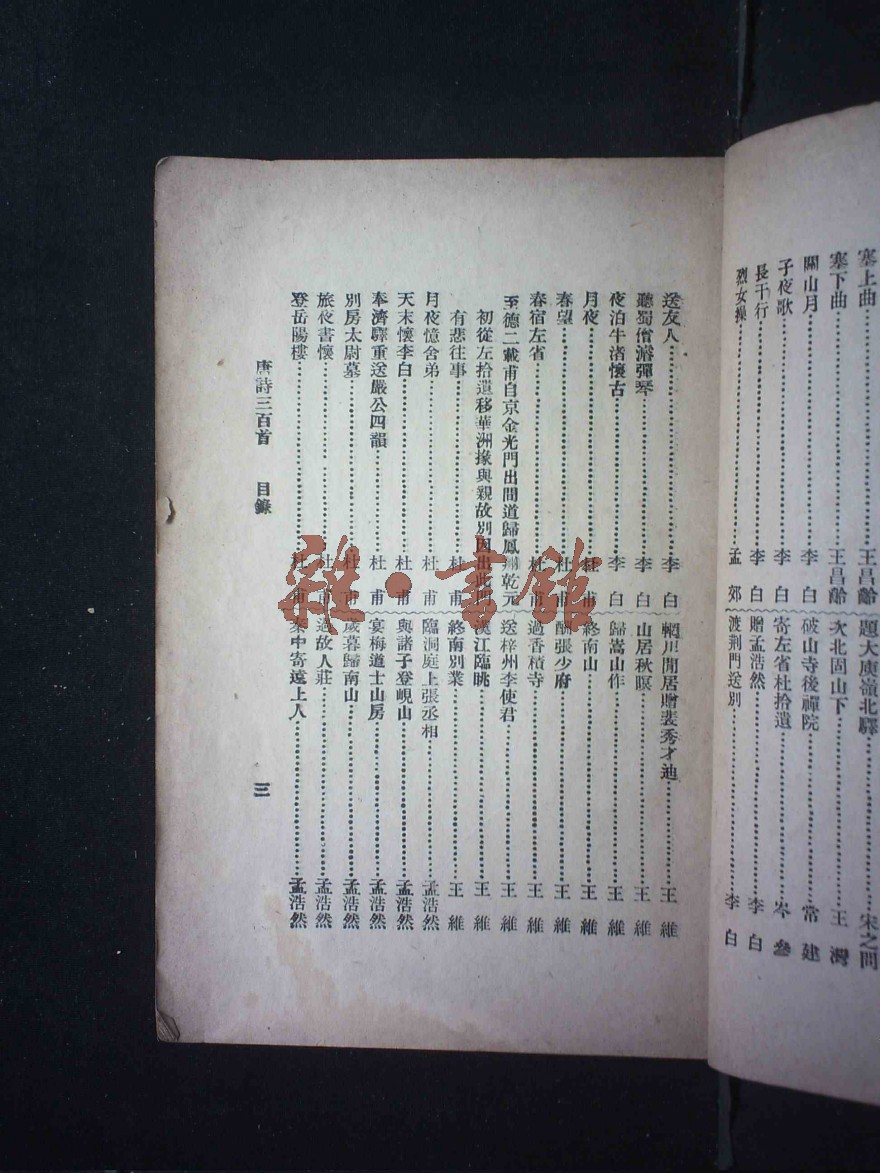 塞上曲 王昌齡
塞下曲 王昌齡
關山月 李白
子夜歌 李白
長干行 李白
烈女操 孟郊
題大庾嶺北驛 宋之問
次北固山下 王灣
破山寺後禪院 常建
寄左省杜拾遺 岑參
贈孟浩然 李白
渡荆門送別 李白
送友人 李白
聽蜀僧濬彈琴 李白
夜泊牛渚懷古 李白
月夜 杜甫
春望 杜甫
春宿左省 杜甫
至德二載甫自京金光門出間道歸鳳翔乾元
初從左拾遺移華洲掾與親故別因出此門
有悲往事 杜甫
月夜憶舍弟 杜甫
天末懷李白 杜甫
奉濟驛重送嚴公四韻 杜甫
別房太尉墓 杜甫
旅夜書懷 杜甫
登岳陽樓 杜甫
輞川閒居贈裴秀才迪 王維
山居秋暝 王維
歸嵩山作 王維
終南山 王維
酬張少府 王維
過香積寺 王維
送梓州李使君 王維
漢江臨眺 王維
終南別業 王維
臨洞庭上張丞相 孟浩然
與諸子登峴山 孟浩然
宴梅道士山房 孟浩然
歲暮歸南山 孟浩然
過故人莊 孟浩然
秦中寄遠上人 孟浩然
唐詩三百首 目錄 三
雜·書館